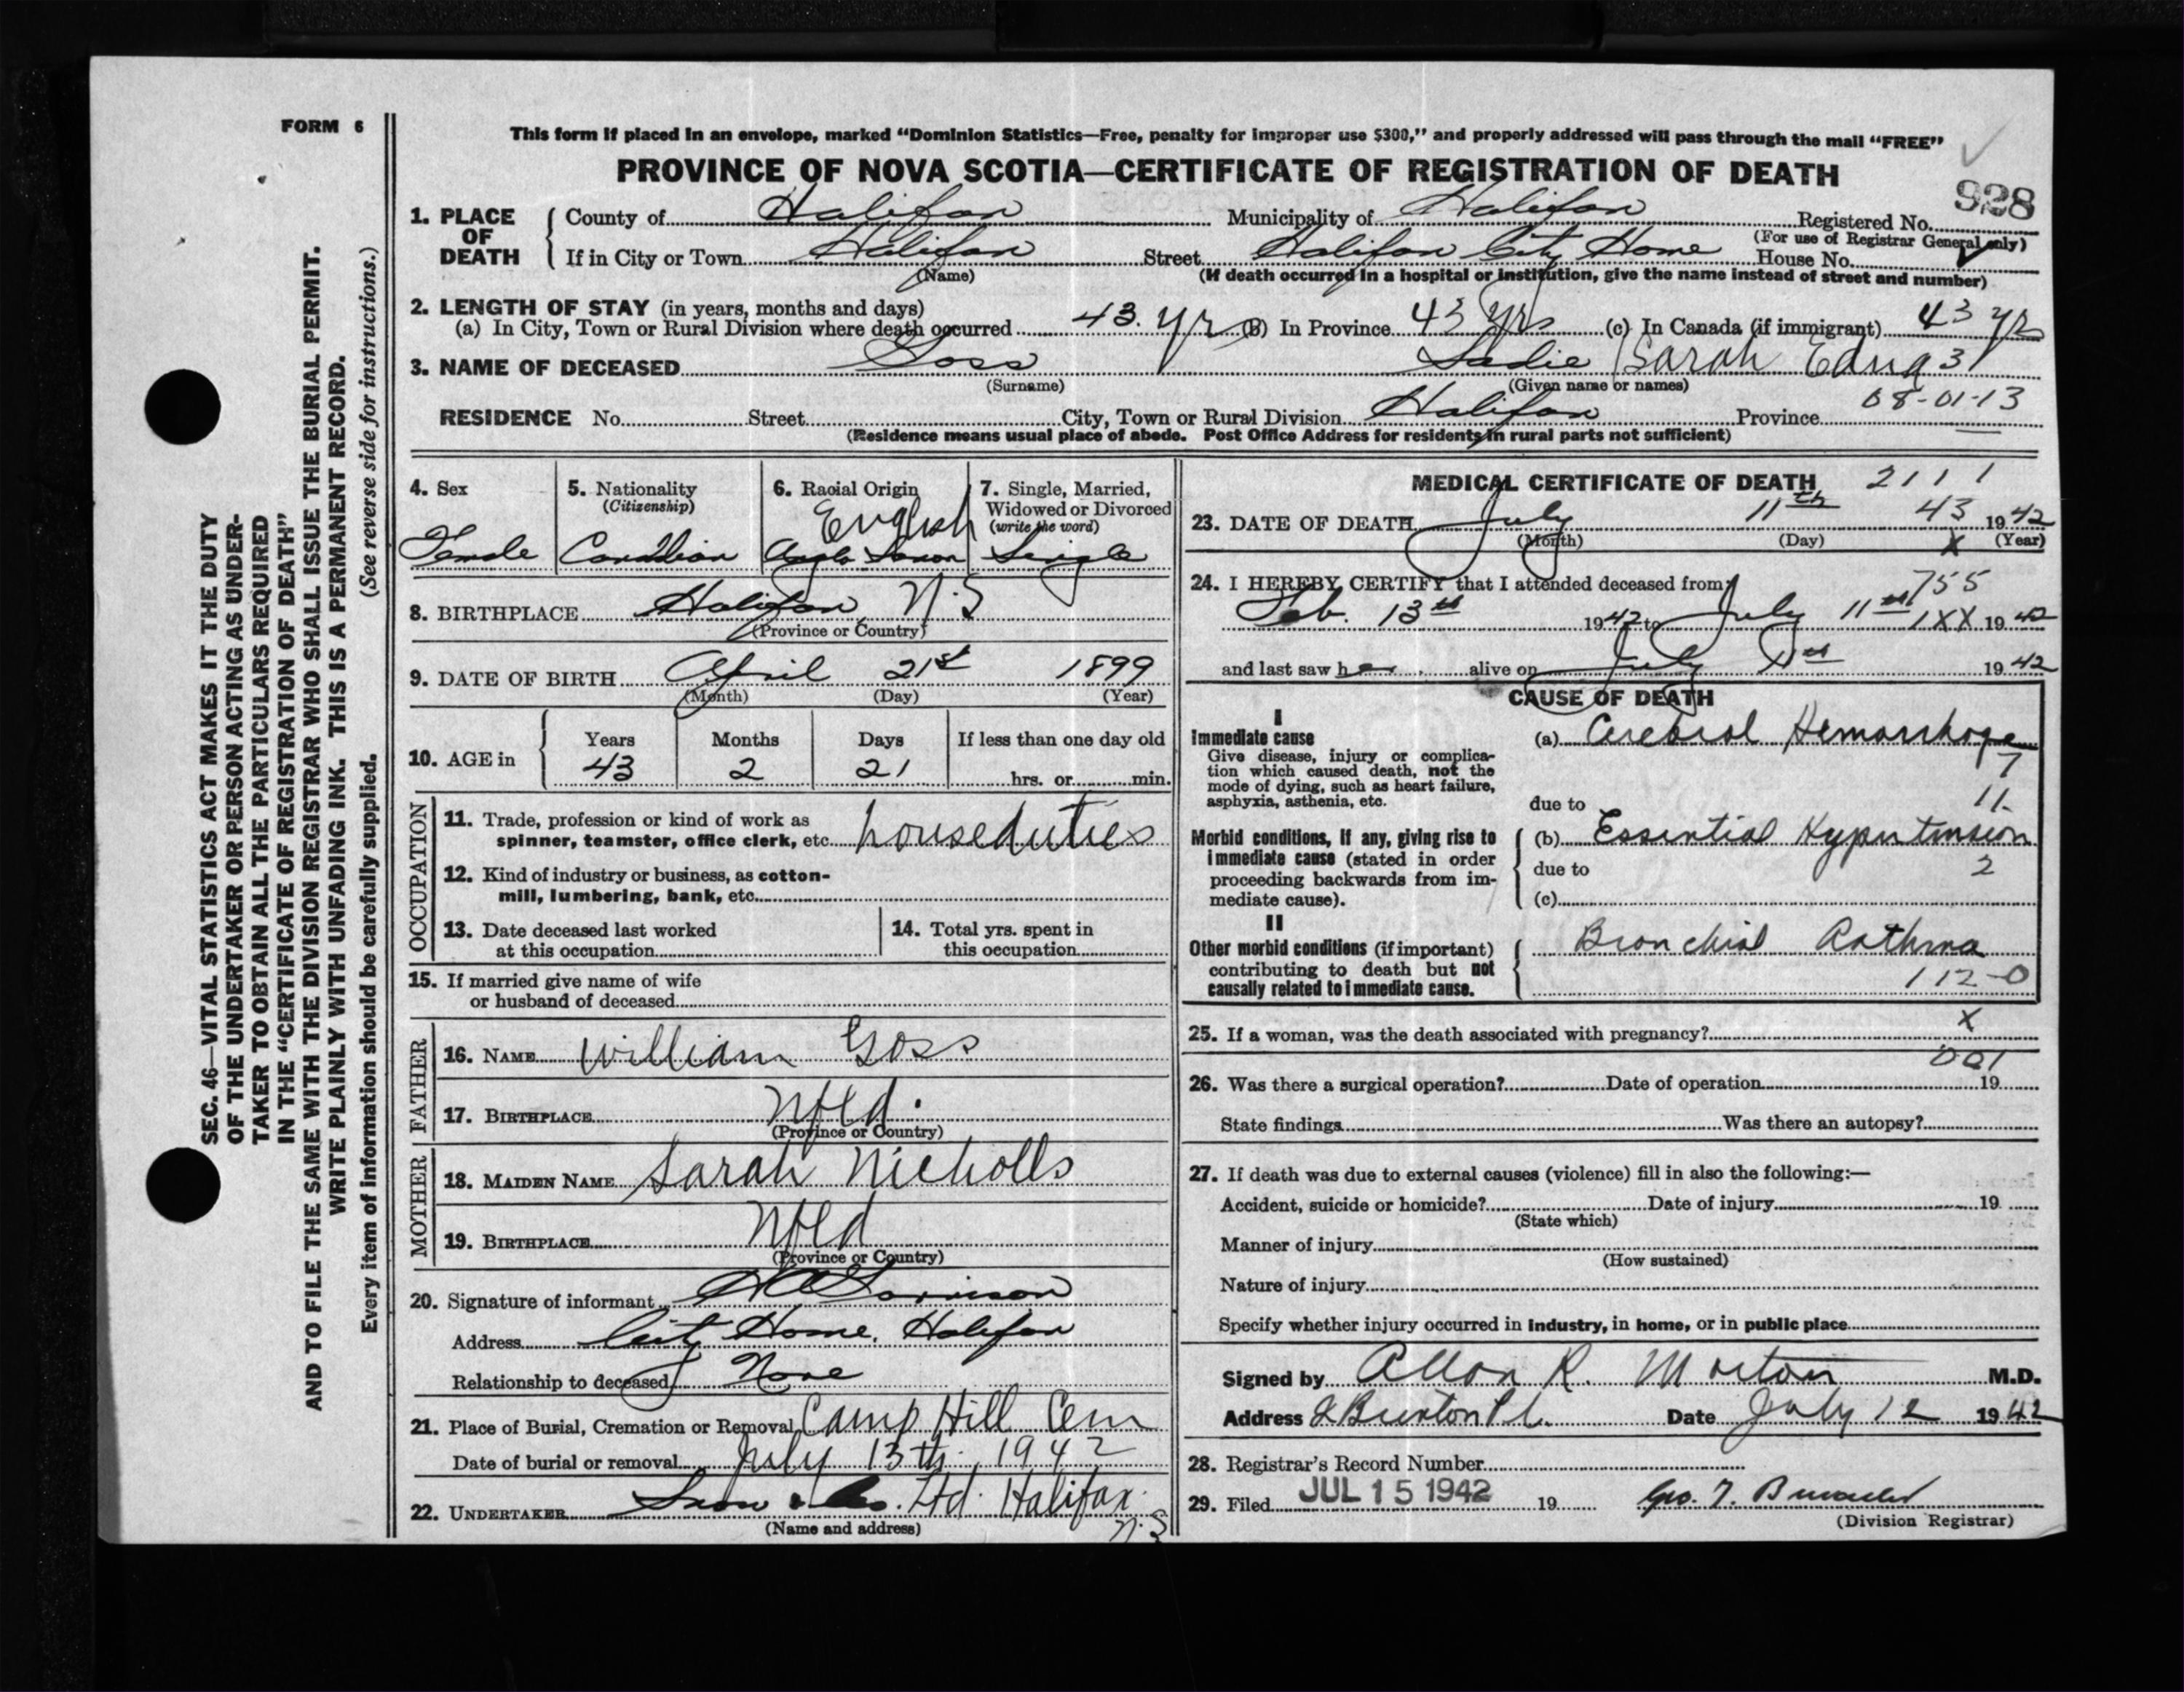 FORM 6
This form if placed in an envelope, marked "Dominion Statistics—Free, penalty for improper use $300," and properly addressed will pass through the mail "FREE"
PROVINCE OF NOVA SCOTIA—CERTIFICATE OF REGISTRATION OF DEATH
928
1. PLACE OF DEATH
County of Halifax Municipality of Halifax Registered No.
(For use of Registrar General only)
If in City or Town Halifax Street Halifax City Home House No.
(Name) (If death occurred in a hospital or institution, give the name instead of street and number)
2. LENGTH OF STAY (in years, months and days)
(a) In City, Town or Rural Division where death occurred 43. yrs (B) In Province 43 yrs (c) In Canada (if immigrant) 43 yrs
3. NAME OF DECEASED Goss Sadie Sarah Edna 31
(Surname) (Given name or names)
08-01-13
RESIDENCE No. Street City, Town or Rural Division Halifax Province
(Residence means usual place of abode. Post Office Address for residents in rural parts not sufficient)
SEC. 46—VITAL STATISTICS ACT MAKES IT THE DUTY
OF THE UNDERTAKER OR PERSON ACTING AS UNDER-
TAKER TO OBTAIN ALL THE PARTICULARS REQUIRED
IN THE "CERTIFICATE OF REGISTRATION OF DEATH"
AND TO FILE THE SAME WITH THE DIVISION REGISTRAR WHO SHALL ISSUE THE BURIAL PERMIT.
WRITE PLAINLY WITH UNFADING INK. THIS IS A PERMANENT RECORD.
Every item of information should be carefully supplied. (See reverse side for instructions.)
4. Sex
Female
5. Nationality
(Citizenship)
Canadian
6. Racial Origin
English
Anglo Saxon
7. Single, Married,
Widowed or Divorced
(write the word)
Single
8. BIRTHPLACE Halifax, N.S
(Province or Country)
9. DATE OF BIRTH April 21st 1899
(Month) (Day) (Year)
10. AGE in
Years Months Days If less than one day old
43 2 21 hrs. or min.
OCCUPATION
11. Trade, profession or kind of work as
spinner, teamster, office clerk, etc. houseduties
12. Kind of industry or business, as cotton-
mill, lumbering, bank, etc.
13. Date deceased last worked
at this occupation
14. Total yrs. spent in
this occupation
15. If married give name of wife
or husband of deceased
FATHER
16. NAME William Goss
17. BIRTHPLACE Nfld.
(Province or Country)
MOTHER
18. MAIDEN NAME Sarah Nicholls
19. BIRTHPLACE Nfld
(Province or Country)
20. Signature of informant
Address City Home, Halifax
Relationship to deceased None
21. Place of Burial, Cremation or Removal Camp Hill Cem
Date of burial or removal July 13th, 1942
22. UNDERTAKER Snow & Co. Ltd. Halifax.
(Name and address) N.S
MEDICAL CERTIFICATE OF DEATH 2111
43
23. DATE OF DEATH July 11th 1942
(Month) (Day) X (Year)
24. I HEREBY CERTIFY that I attended deceased from 755
Feb. 13th 1942 to July 11th 1XX 1942
and last saw her alive on July 11th 1942
CAUSE OF DEATH
I
Immediate cause
Give disease, injury or complica-
tion which caused death, not the
mode of dying, such as heart failure,
asphyxia, asthenia, etc.
(a) Cerebral Hemorrhage
7
11.
due to
Morbid conditions, if any, giving rise to
immediate cause (stated in order
proceeding backwards from im-
mediate cause).
(b) Essential Hypertension
due to 2
(c)
II
Other morbid conditions (if important)
contributing to death but not
causally related to immediate cause.
Bronchial Asthma
112-0
25. If a woman, was the death associated with pregnancy? X
001
26. Was there a surgical operation? Date of operation 19
State findings Was there an autopsy?
27. If death was due to external causes (violence) fill in also the following:—
Accident, suicide or homicide? Date of injury 19
(State which)
Manner of injury
(How sustained)
Nature of injury
Specify whether injury occurred in industry, in home, or in public place
Signed by Allan R. Morton M.D.
Address Date July 12 1942
28. Registrar's Record Number
29. Filed JUL 15 1942 19 Geo. T.
(Division Registrar)